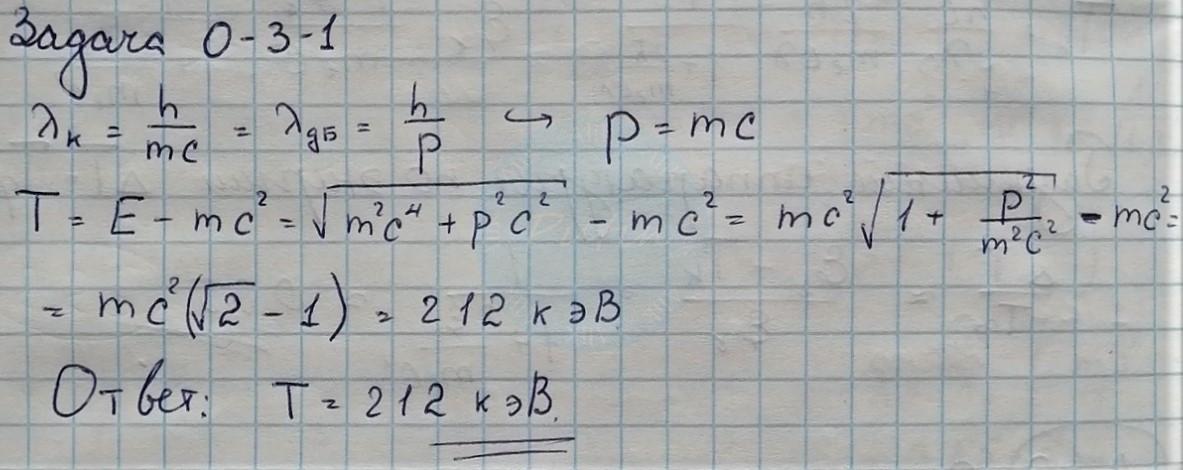 Задача 0-3-1
λ_к = h/mc = λ_дБ = h/p ↪ p = mc
T = E - mc² = √(m²c⁴ + p²c²) - mc² = mc²√(1 + p²/m²c²) - mc² =
= mc²(√2 - 1) = 212 кэВ
Ответ: T = 212 кэВ.